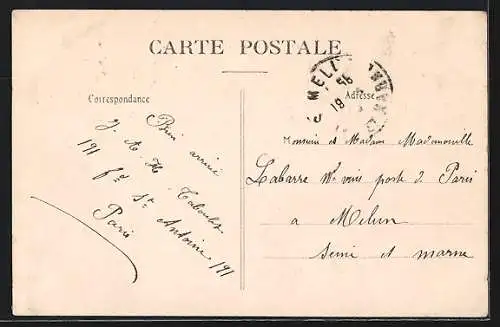 CARTE POSTALE
Correspondance
Adresse
MELUN
Bien arrivé
J. A. H. Taboulot
191 fg St Antoine 191
Paris
Monsieur et Madame Mademoiselle
Labarre Md vins porte de Paris
a Melun
Seine et marne